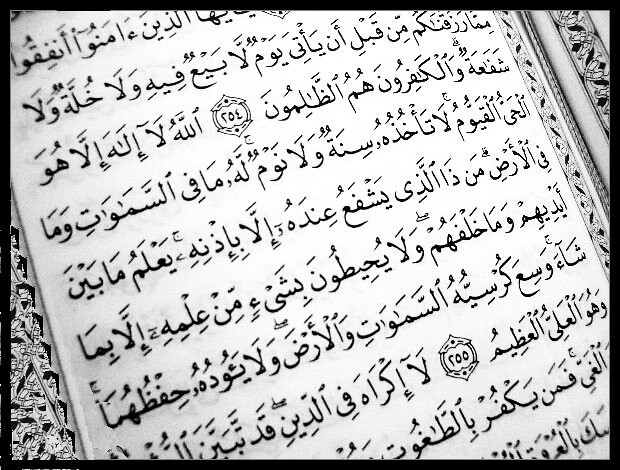 يَٰٓأَيُّهَا ٱلَّذِينَ ءَامَنُوٓا۟ أَنفِقُوا۟
مِمَّا رَزَقْنَٰكُم مِّن قَبْلِ أَن يَأْتِىَ يَوْمٌ لَّا بَيْعٌ فِيهِ وَلَا خُلَّةٌ وَلَا
شَفَٰعَةٌ ۗ وَٱلْكَٰفِرُونَ هُمُ ٱلظَّٰلِمُونَ ٢٥٤ ٱللَّهُ لَآ إِلَٰهَ إِلَّا هُوَ
ٱلْحَىُّ ٱلْقَيُّومُ ۚ لَا تَأْخُذُهُۥ سِنَةٌ وَلَا نَوْمٌ ۚ لَّهُۥ مَا فِى ٱلسَّمَٰوَٰتِ وَمَا
فِى ٱلْأَرْضِ ۗ مَن ذَا ٱلَّذِى يَشْفَعُ عِندَهُۥٓ إِلَّا بِإِذْنِهِۦ ۚ يَعْلَمُ مَا بَيْنَ
أَيْدِيهِمْ وَمَا خَلْفَهُمْ ۖ وَلَا يُحِيطُونَ بِشَىْءٍ مِّنْ عِلْمِهِۦٓ إِلَّا بِمَا
شَآءَ ۚ وَسِعَ كُرْسِيُّهُ ٱلسَّمَٰوَٰتِ وَٱلْأَرْضَ ۖ وَلَا يَـُٔودُهُۥ حِفْظُهُمَا ۚ
وَهُوَ ٱلْعَلِىُّ ٱلْعَظِيمُ ٢٥٥ لَآ إِكْرَاهَ فِى ٱلدِّينِ ۖ قَد تَّبَيَّنَ
ٱلْغَىِّ ۚ فَمَن يَكْفُرْ بِٱلطَّٰغُوتِ
بِٱلْعُرْوَةِ